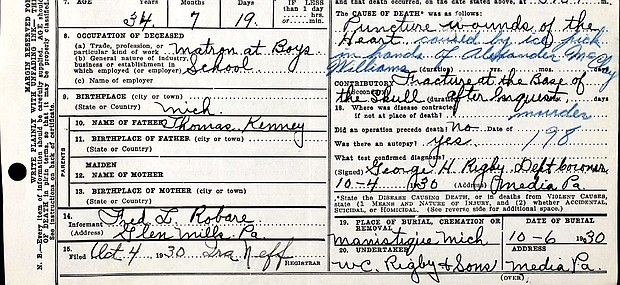 7. AGE
34 7 19. IF LESS than 1 day,
hrs.
or min.
8. OCCUPATION OF DECEASED
(a) Trade, profession, or particular kind of work Matron at Boys
(b) General nature of industry, business or establishment in which employed (or employer) School
(c) Name of employer
9. BIRTHPLACE (city or town)
(State or Country) Mich.
PARENTS
10. NAME OF FATHER Thomas Kenney
11. BIRTHPLACE OF FATHER (city or town)
(State or Country)
12. MAIDEN NAME OF MOTHER
13. BIRTHPLACE OF MOTHER (city or town)
(State or Country)
14. Informant Fred L. Robare
(Address) Glen Mills. Pa
15. Filed Oct 4 1930 Ira Neff
REGISTRAR
MARGIN RESERVED FOR
WRITE PLAINLY WITH UNFADING INK
N. B.—Every item of information should be carefully supplied. AGE
OF DEATH in plain terms, so that it may be properly classified.
See instructions on back of certificate.
and that death occurred, on the date stated above, at
The CAUSE OF DEATH* was as follows:
Puncture wounds of the
Heart caused by ice pick
in hands of Alexander McClay
Williams (duration) yrs. mos. ds.
CONTRIBUTORY Fracture at the Base of
the Skull after Inquest.
18. Where was disease contracted
if not at place of death? murder
Did an operation precede death? No. Date of
198
Was there an autopsy? yes.
What test confirmed diagnosis?
(Signed) George H. Rigby Dept Coroner
10-4 1930 (Address) Media Pa.
*State the DISEASE CAUSING DEATH, or in deaths from VIOLENT CAUSES,
state (1) MEANS AND NATURE OF INJURY, and (2) whether ACCIDENTAL,
SUICIDAL, or HOMICIDAL. (See reverse side for additional space).
19. PLACE OF BURIAL, CREMATION OR REMOVAL DATE OF BURIAL
Manistique Mich 10-6 1930
20. UNDERTAKER ADDRESS
W.C. Rigby & Sons Media Pa.
(OVER)